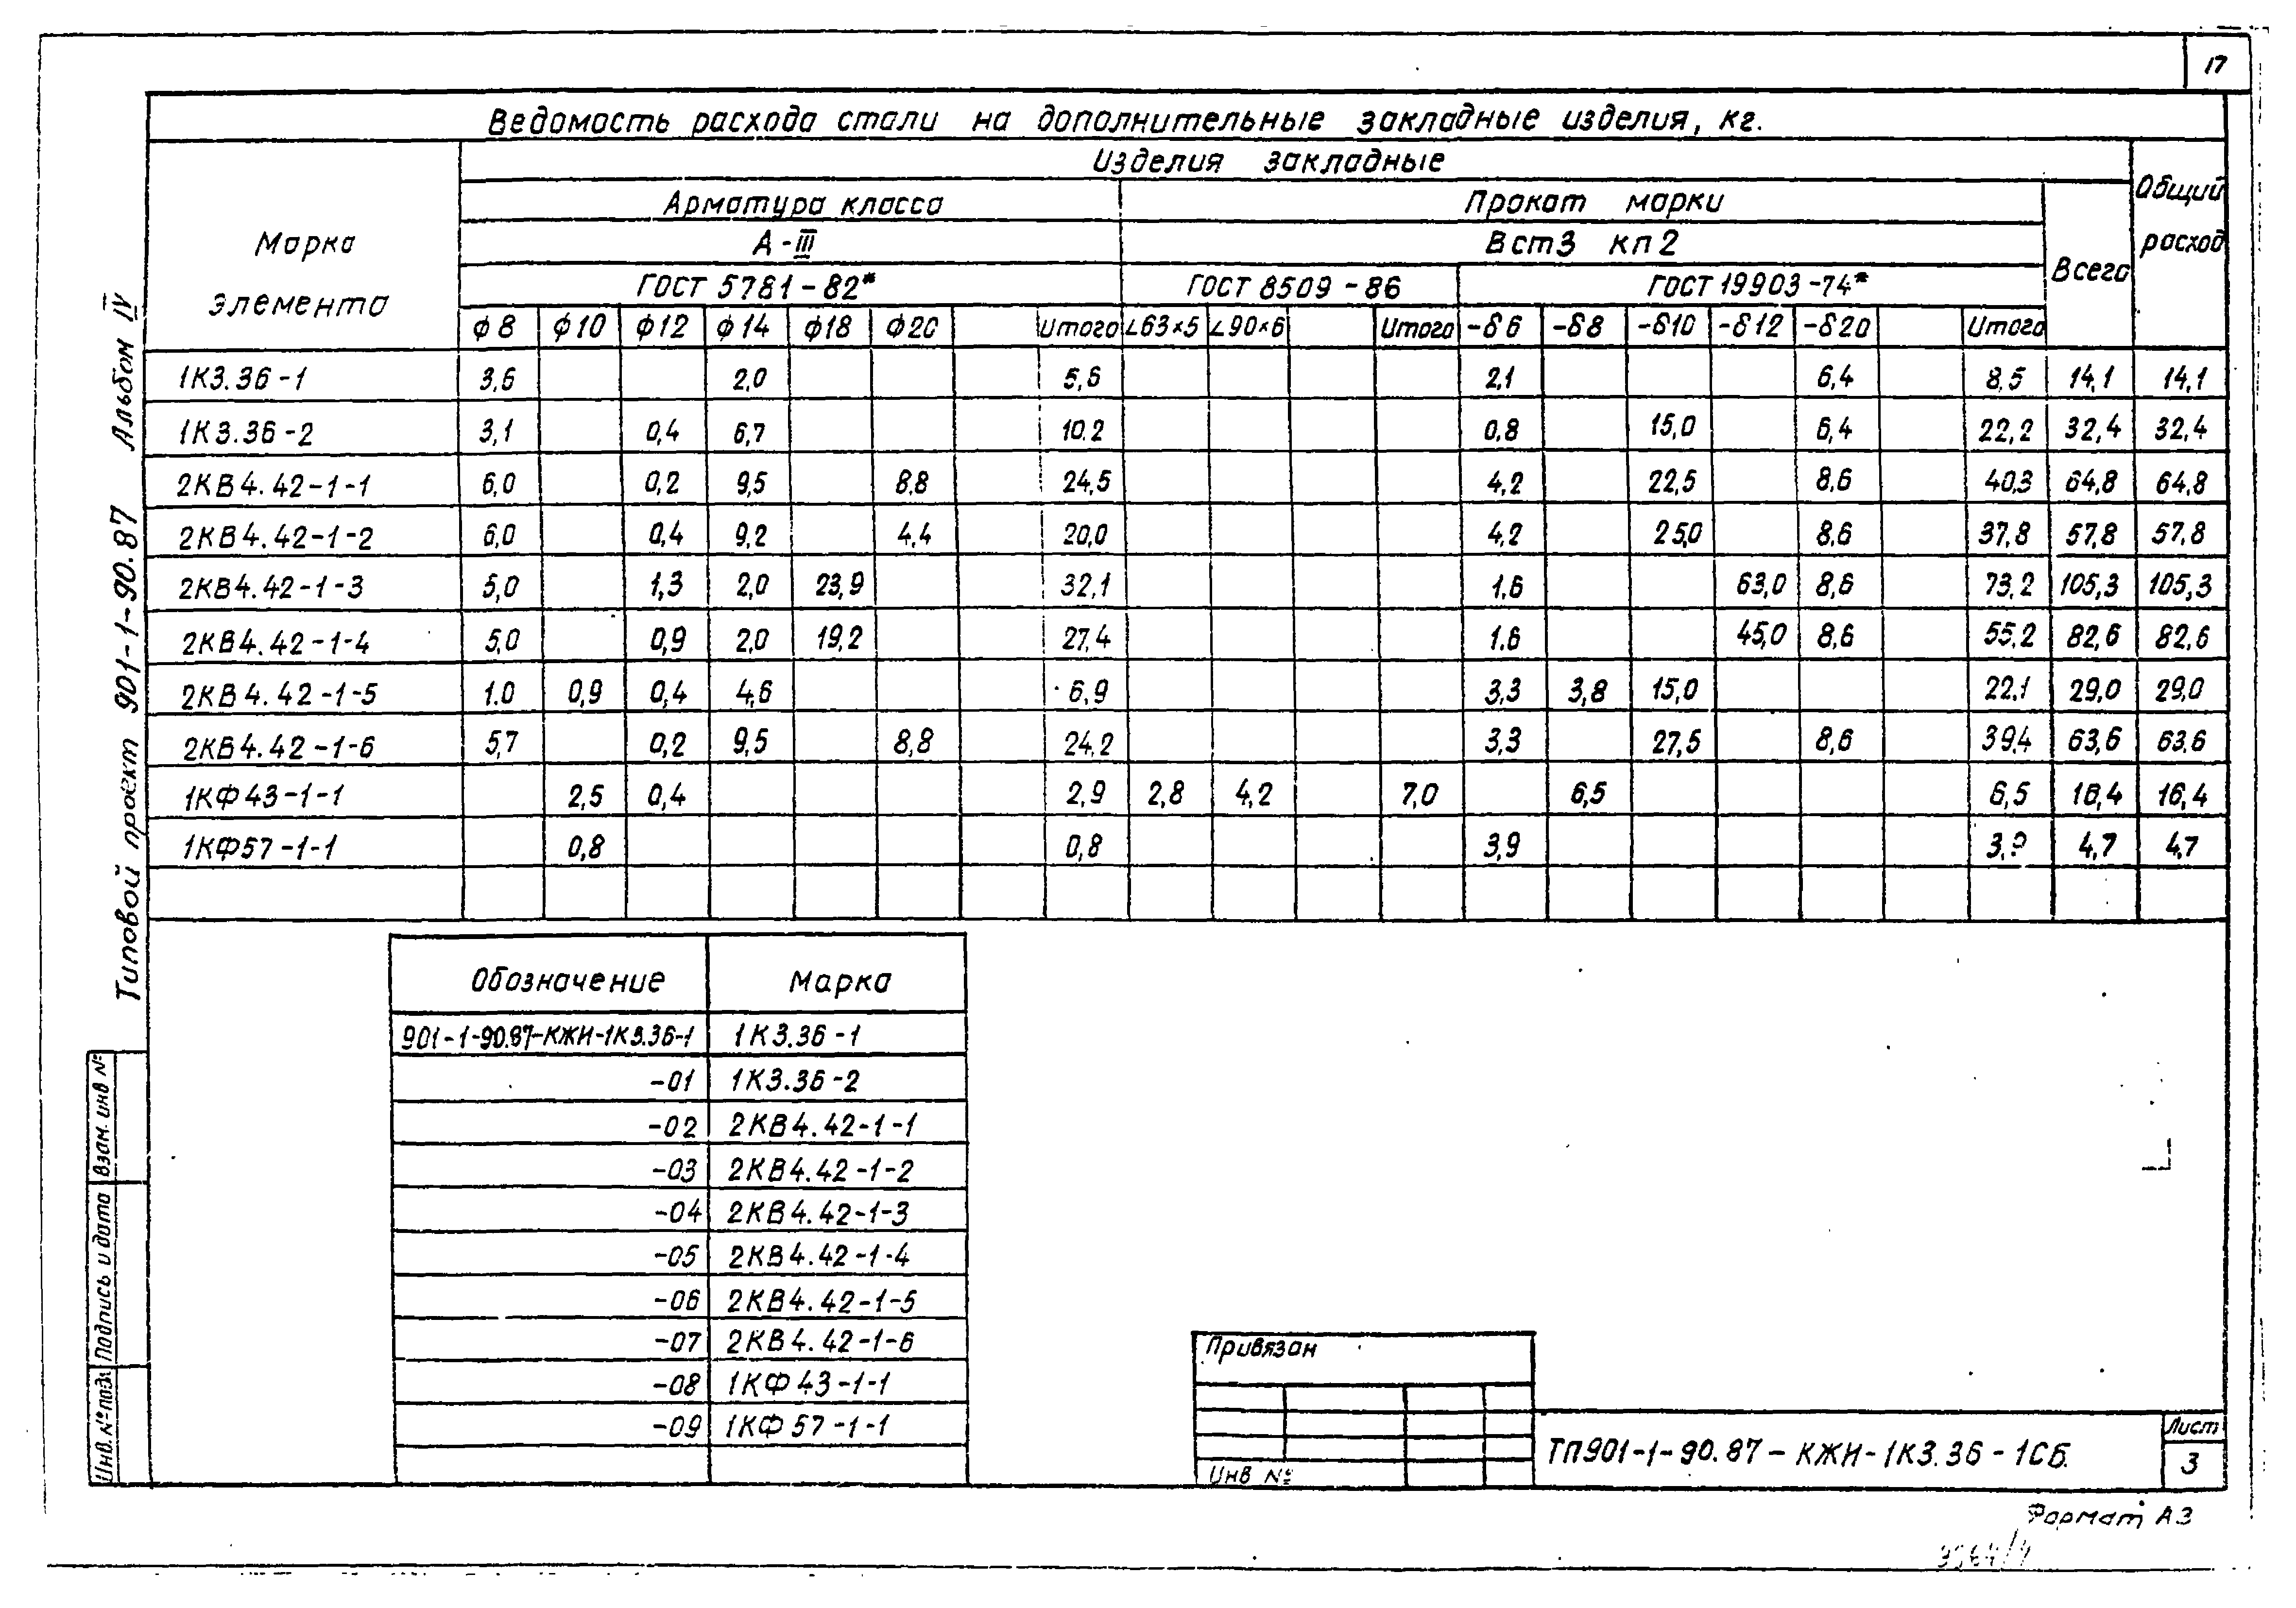 17
Ведомость расхода стали на дополнительные закладные изделия, кг.
Марка элемента
Изделия закладные
Общий расход
Арматура класса
Прокат марки
Всего
А-III
Вст3 кп2
ГОСТ 5781-82*
ГОСТ 8509-86
ГОСТ 19903-74*
ф8 ф10 ф12 ф14 ф18 ф20 Итого ∠63×5 ∠90×6 Итого -δ6 -δ8 -δ10 -δ12 -δ20 Итого
1К3.36-1 3,6 2,0 5,6 2,1 6,4 8,5 14,1 14,1
1К3.36-2 3,1 0,4 6,7 10.2 0,8 15,0 6,4 22,2 32,4 32,4
2КВ4.42-1-1 6,0 0,2 9,5 8,8 24,5 4,2 22,5 8,6 40,3 64,8 64,8
2КВ4.42-1-2 6,0 0,4 9,2 4,4 20,0 4,2 25,0 8,6 37,8 57,8 57,8
2КВ4.42-1-3 5,0 1,3 2,0 23,9 32,1 1,6 63,0 8,6 73,2 105,3 105,3
2КВ4.42-1-4 5,0 0,9 2,0 19,2 27,4 1.6 45,0 8,6 55,2 82,6 82,6
2КВ4.42-1-5 1.0 0,9 0,4 4,6 6,9 3,3 3,8 15,0 22,1 29,0 29,0
2КВ4.42-1-6 5,7 0,2 9,5 8,8 24,2 3,3 27,5 8,6 39,4 63,6 63,6
1КФ43-1-1 2,5 0,4 2,9 2,8 4,2 7,0 6,5 6,5 16,4 16,4
1КФ57-1-1 0,8 0,8 3,9 3,9 4,7 4,7
Обозначение Марка
901-1-90.87-КЖИ-1К3.36-1 1К3.36-1
-01 1К3.36-2
-02 2КВ4.42-1-1
-03 2КВ4.42-1-2
-04 2КВ4.42-1-3
-05 2КВ4.42-1-4
-06 2КВ4.42-1-5
-07 2КВ4.42-1-6
-08 1КФ43-1-1
-09 1КФ57-1-1
Типовой проект 901-1-90.87 Альбом IV
Взам. инв №
Подпись и дата
Инв. № подл
Привязан
Инв №
ТП901-1-90.87-КЖИ-1К3.36-1СБ.
Лист
3
Формат А3